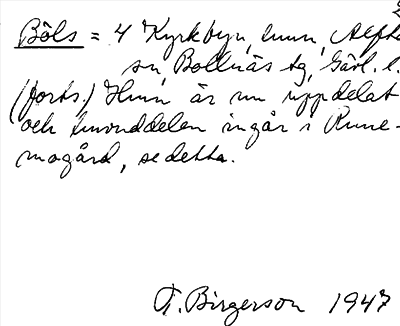 2
Böls = 4 Kyrkbyn, hmn, Alfta
sn, Bollnäs tg, Gävl. l.
(forts.) Hmn är nu uppdelat
och huvuddelen ingår i Rune-
mogård, se detta.
T. Birgerson 1947